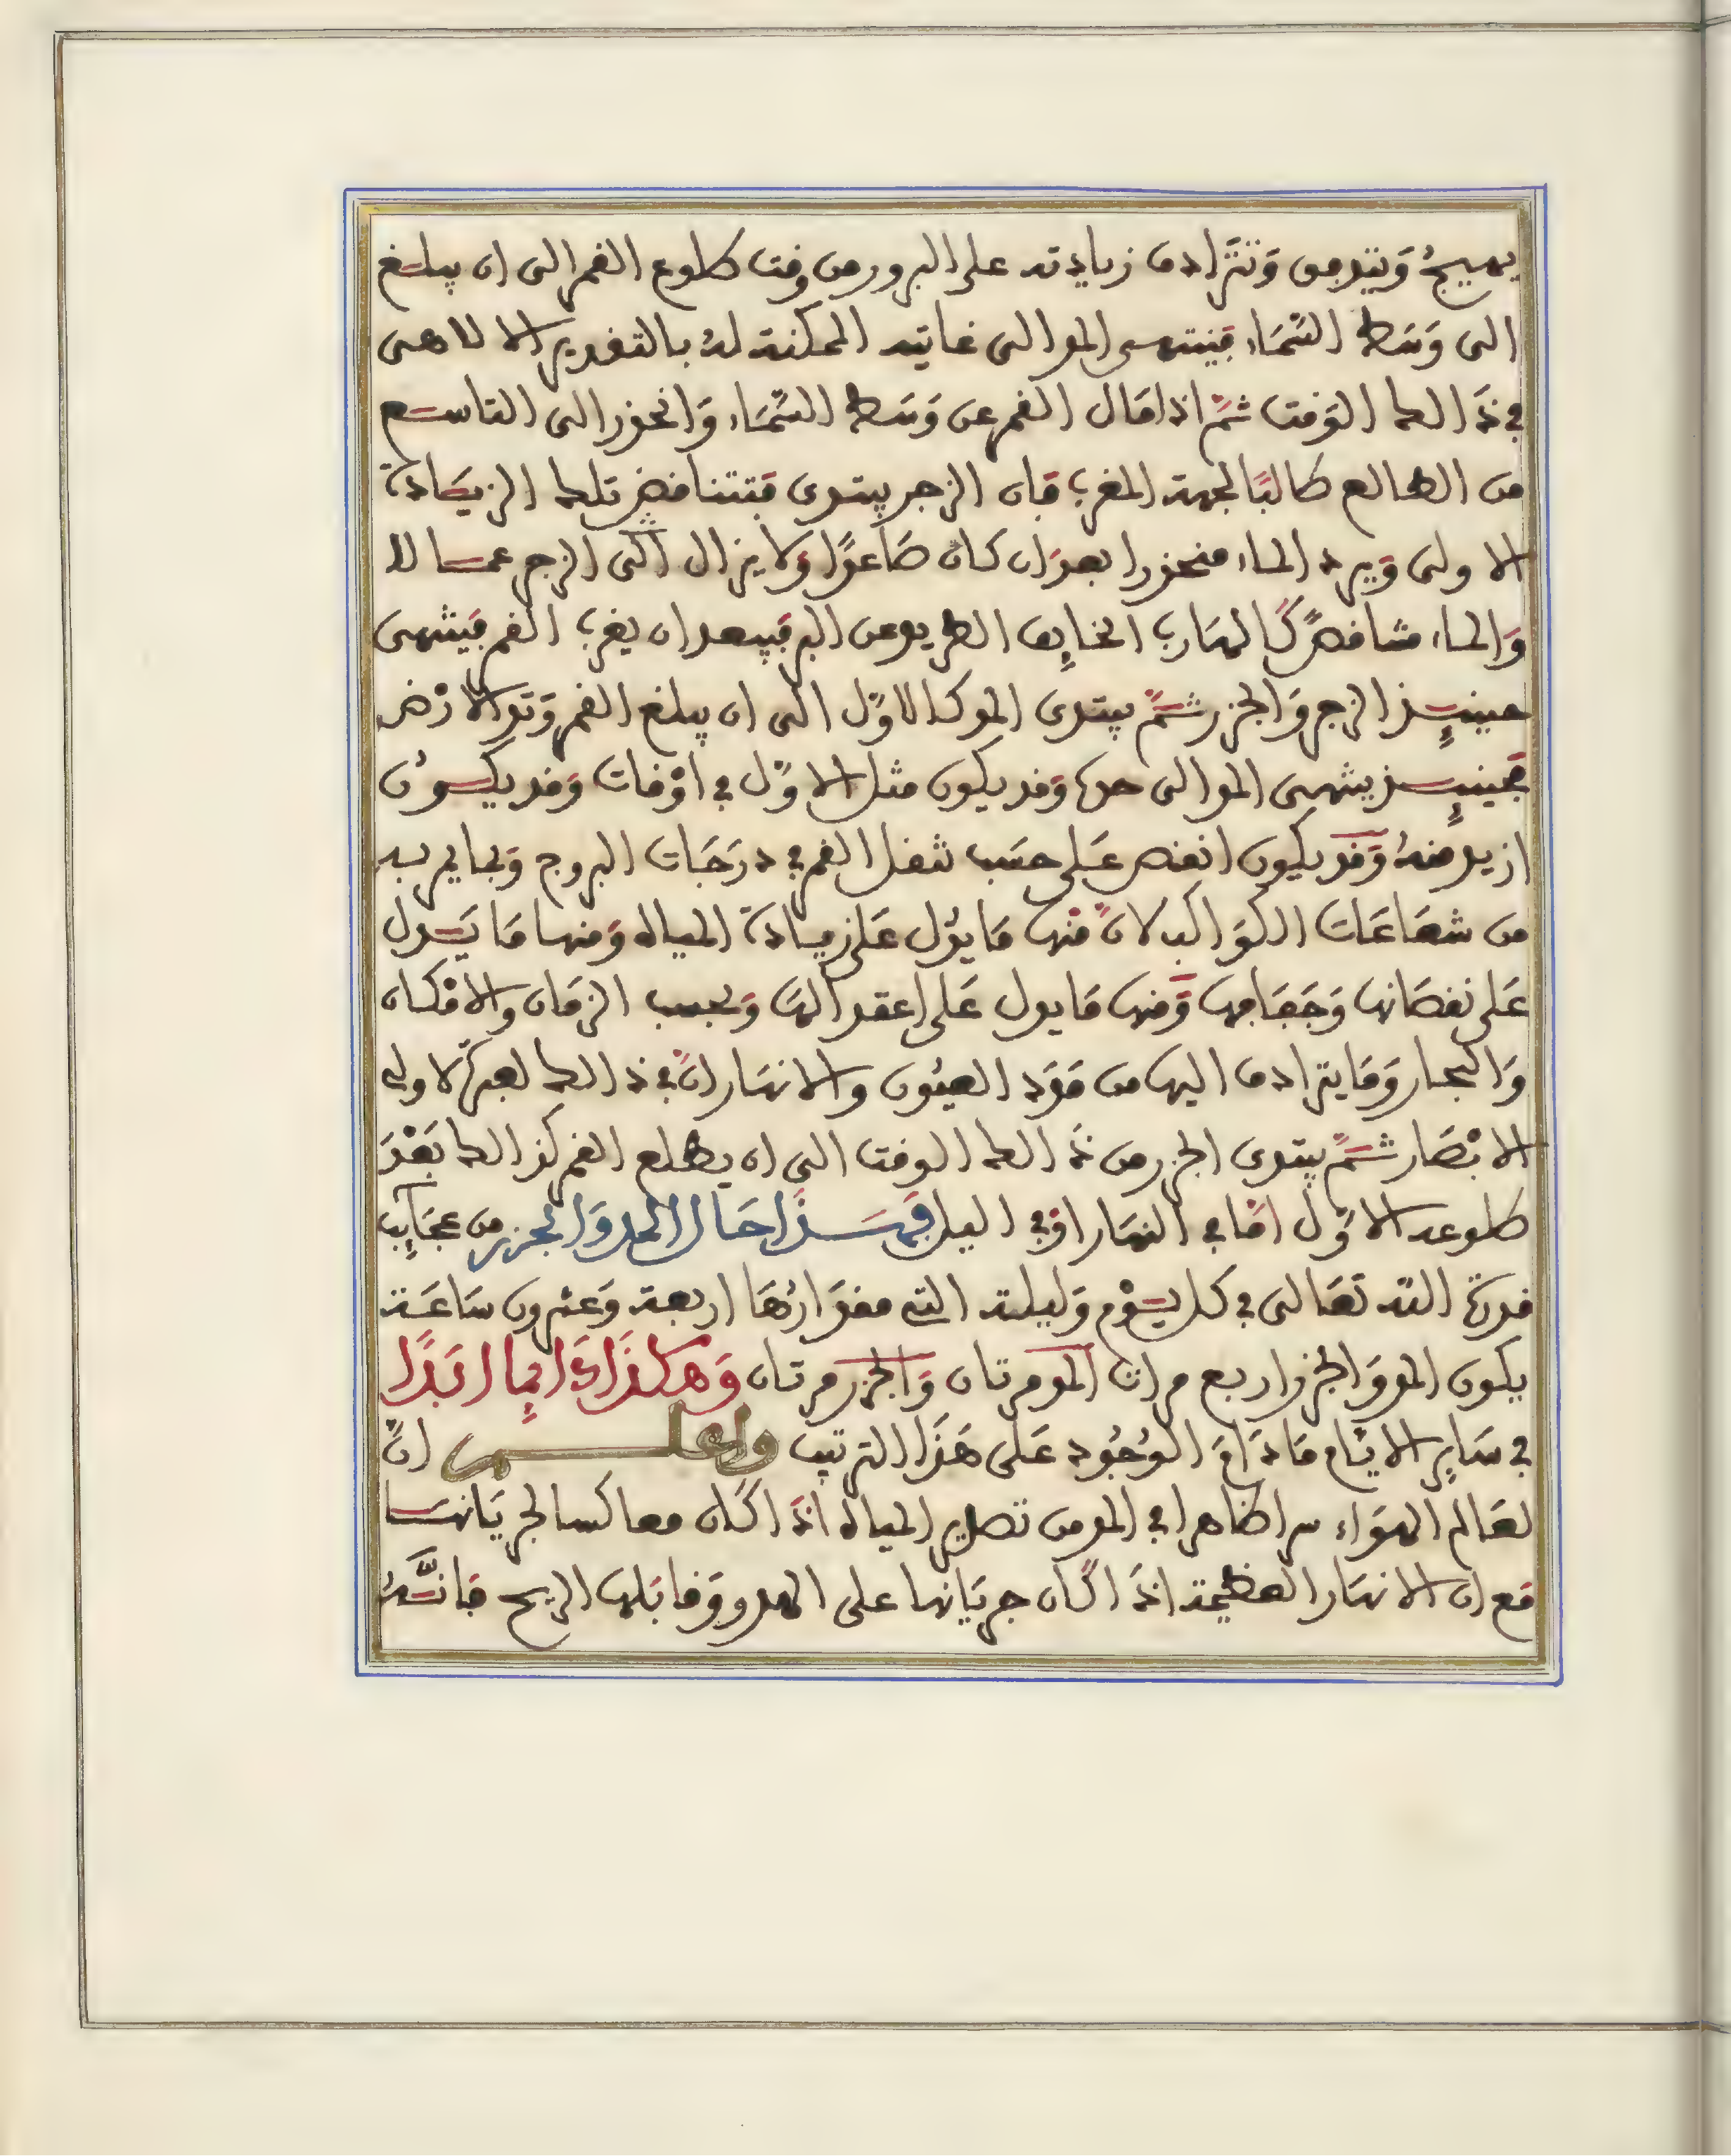 يهيجُ وَيتدفق وَتتَرادف زيادته على البرور من وقت طلوع القمر الى ان يبلغ
الى وَسَط السَّمَاءِ فينتهى المد الى غايته الممكنة لهُ بالتقدير الالاهى
في ذَالك الوَقت ثمَّ اذا مَال القمر عن وَسَط السَّمَاء وَانحدر الى التاسع
من الطالع طالبًا لجهة المغرب فان الزجر يبتدى فتتناقض تلك الزيَادة
الاولى وَيرد الماء منحدرا بعدَ ان كان صَاعدًا وَلا يزال الى الزجر عمالا
وَالماء متناقصً كَالهَارب الخايِف الطريد عن البر فيبعد ان يغرب القمر فينتهى
حينيِذ الزجر وَالجزر ثمَّ يبتدى المد كالاوّل الى ان يبلغ القمر وَتد الارْض
فحينيِذ ينتهى المد الى حدها وَقد يكون مثل الاوّل في اوْقات وَقد يكُون
ازيد منهُ وَقد يكون انقص عَلى حسَب ثقل القمر في درَجَات البروج وَبما يمر به
من شعَاعَات الكوَاكب لانّ منْها مَا يدُل عَلى زيادة المياه وَمنها مَا يَدل
عَلى نقصَانها وَجَفَافها وَّمنها مَا يدل عَلى اعتدالهَا وَبحسب الزمَان والامْكان
وَالبحار وَمَا يترادف اليها من موَد العيُون والانهَار انّ في ذالك لعبرَة لاولي
الابْصَار ثمَّ يبتدى الجزر من ذَالك الوقت الى ان يطلع القمر كذالك بَعْدَ
طلوعه الاوَّل امّا في النهَار اوْ في الليل فهَذَا حَال المد وَالجزر من عجَايِب
قدرة الله تعَالى في كل يَوْم وَليلته التى مقدَارُهَا اربعة وَعشرون سَاعَة
يكون المد وَالجزر اربع مرات المد مرتان وَالجزر مرتان وَهكذَا دَايِما ابَدًا
في سَايِر الايَّام مَا دَامَ الوُجُود عَلى هَذَا الترتيب واعلم انّ
لعَالم الهوَاء سرا ظاهرا في المد من تصدير المياه اذَا كَان معاكسا لجريَانها
مَع ان الانهَار العظيمة اذَا كَان جريَانها على الهدو وَقابَلها الريح فانَّهُ